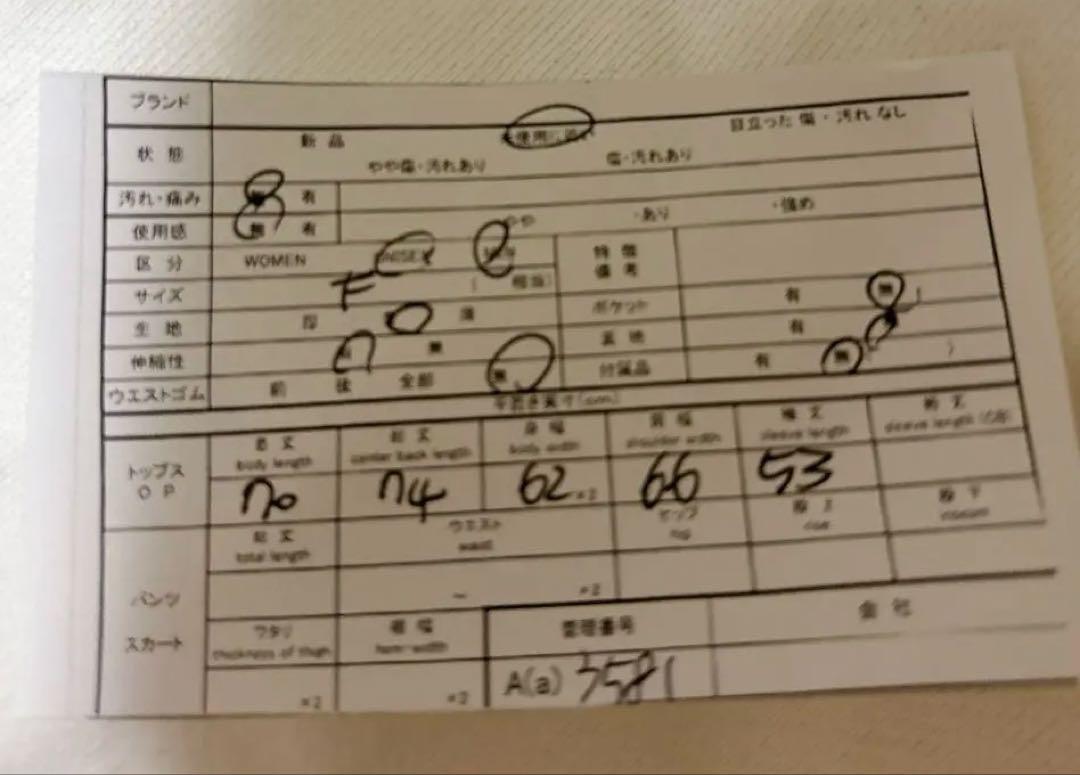 ブランド
状態 新品 使用に近い 目立った傷・汚れなし
やや傷・汚れあり 傷・汚れあり
汚れ・痛み 有
使用感 無 有 やや ・あり ・強め
区分 WOMEN UNISEX MEN 特徴 備考
サイズ F ( 相当)
生地 厚 薄 ポケット 有 無
伸縮性 無 裏地 有
ウエストゴム 前 後 全部 無 付属品 有 無 )
平置き実寸(cm)
トップス OP
着丈 総丈 身幅 肩幅 袖丈 裄丈
body length center back length body width shoulder width sleeve length sleeve length (CB)
70 74 62 ×2 66 53
総丈 ウエスト ヒップ 股上 股下
total length waist hip rise inseam
パンツ ~ ×2
スカート ワタリ 裾幅 管理番号 会社
thickness of thigh hem width
×2 ×2 A(a) 3581